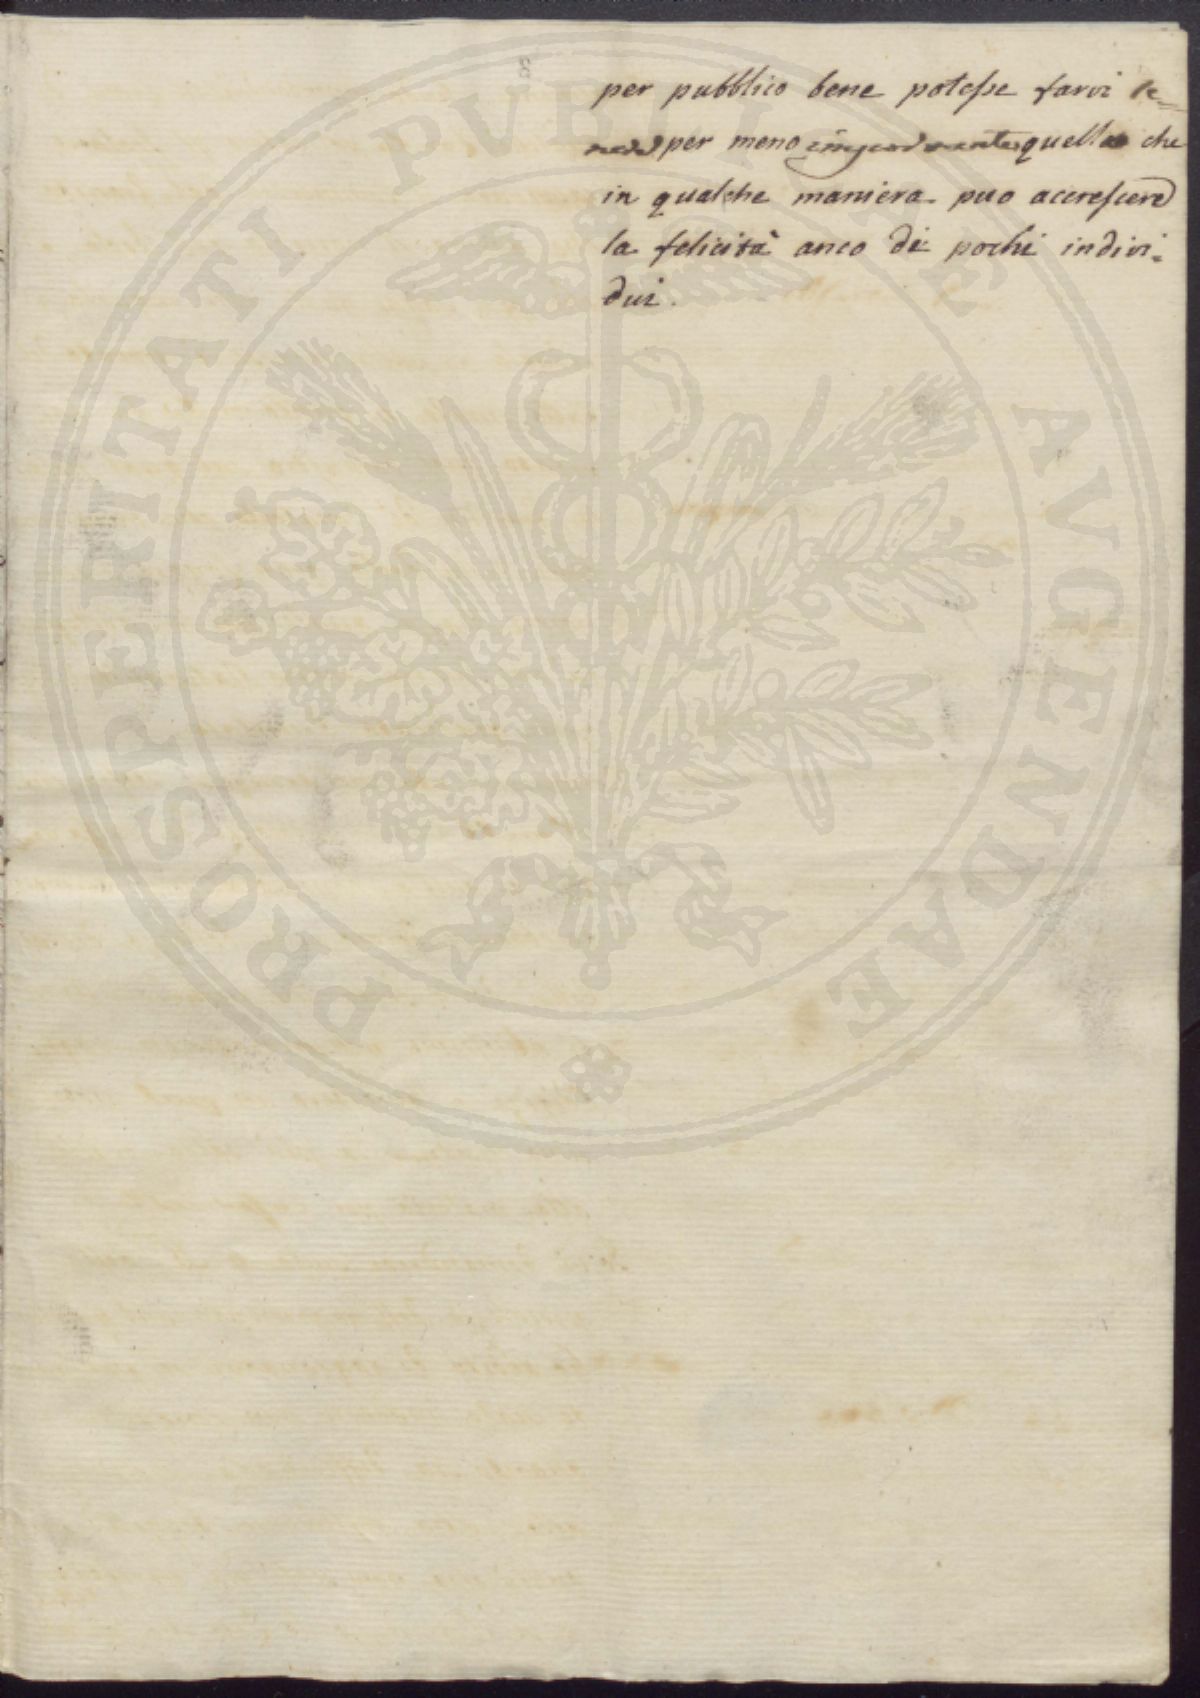 per pubblico bene potesse farvi te=
nere per meno importante quello che
in qualche maniera puo accrescere
la felicità anco di pochi indivi=
dui.
PROSPERITATI PVBLICAE AVGENDAE